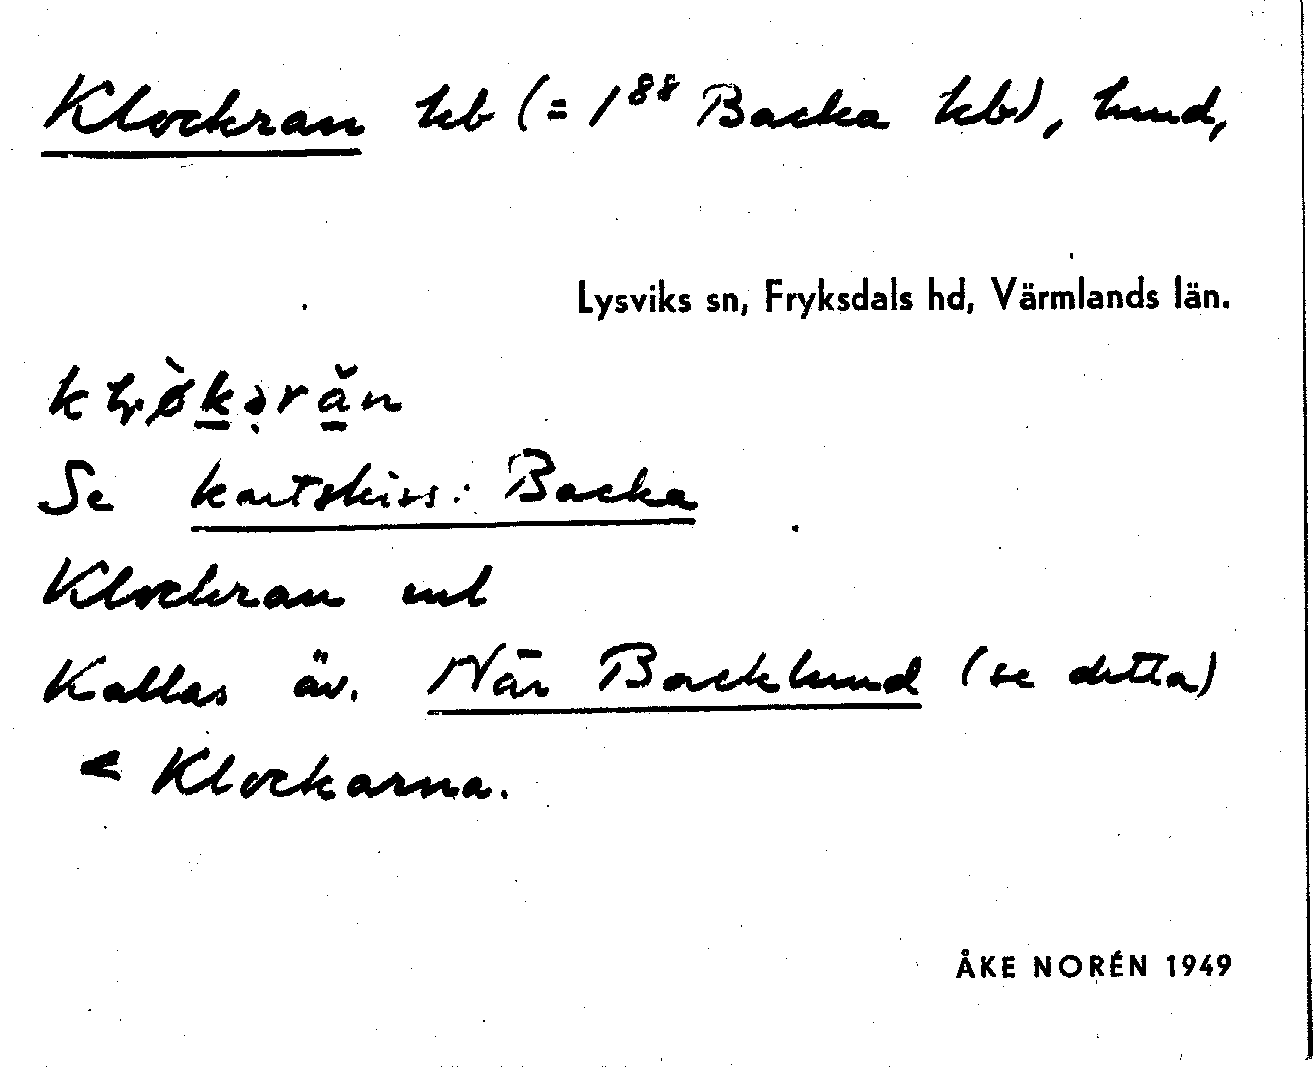 Klockran hb (= 1⁸⁸ Backa hb), hmd,
Lysviks sn, Fryksdals hd, Värmlands län.
Se kartskiss: Backa
Klockran uul
Kallas äv. När Backlund (se detta)
< Klockarna.
ÅKE NORÉN 1949